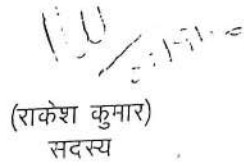 (राकेश कुमार)
सदस्य